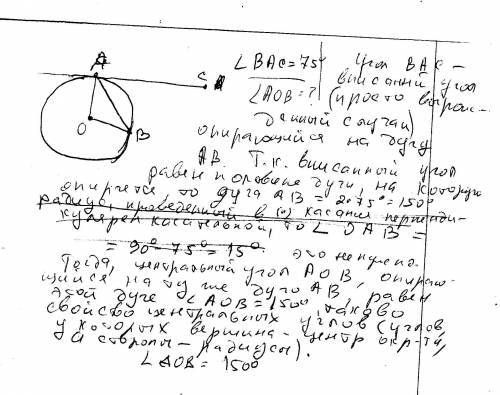 A
C
O
B
∠BAC=75°
∠AOB=?
Угол BAC –
вписанный угол
(просто вырож-
денный случай)
опирающийся на дугу
AB. Т.к. вписанный угол
равен половине дуги, на которую
опирается, то дуга AB = 2·75° = 150°
радиус, проведенный в (·) касания перпенди-
кулярен касательной, то ∠OAB =
= 90° - 75° = 15°. это не нужно.
Тогда, центральный угол AOB, опираю-
щийся на ту же дугу AB, равен
этой дуге ∠AOB = 150°, таково
свойство центральных углов (углов,
у которых вершина - центр окр-ти,
а стороны - радиусы).
∠AOB = 150°